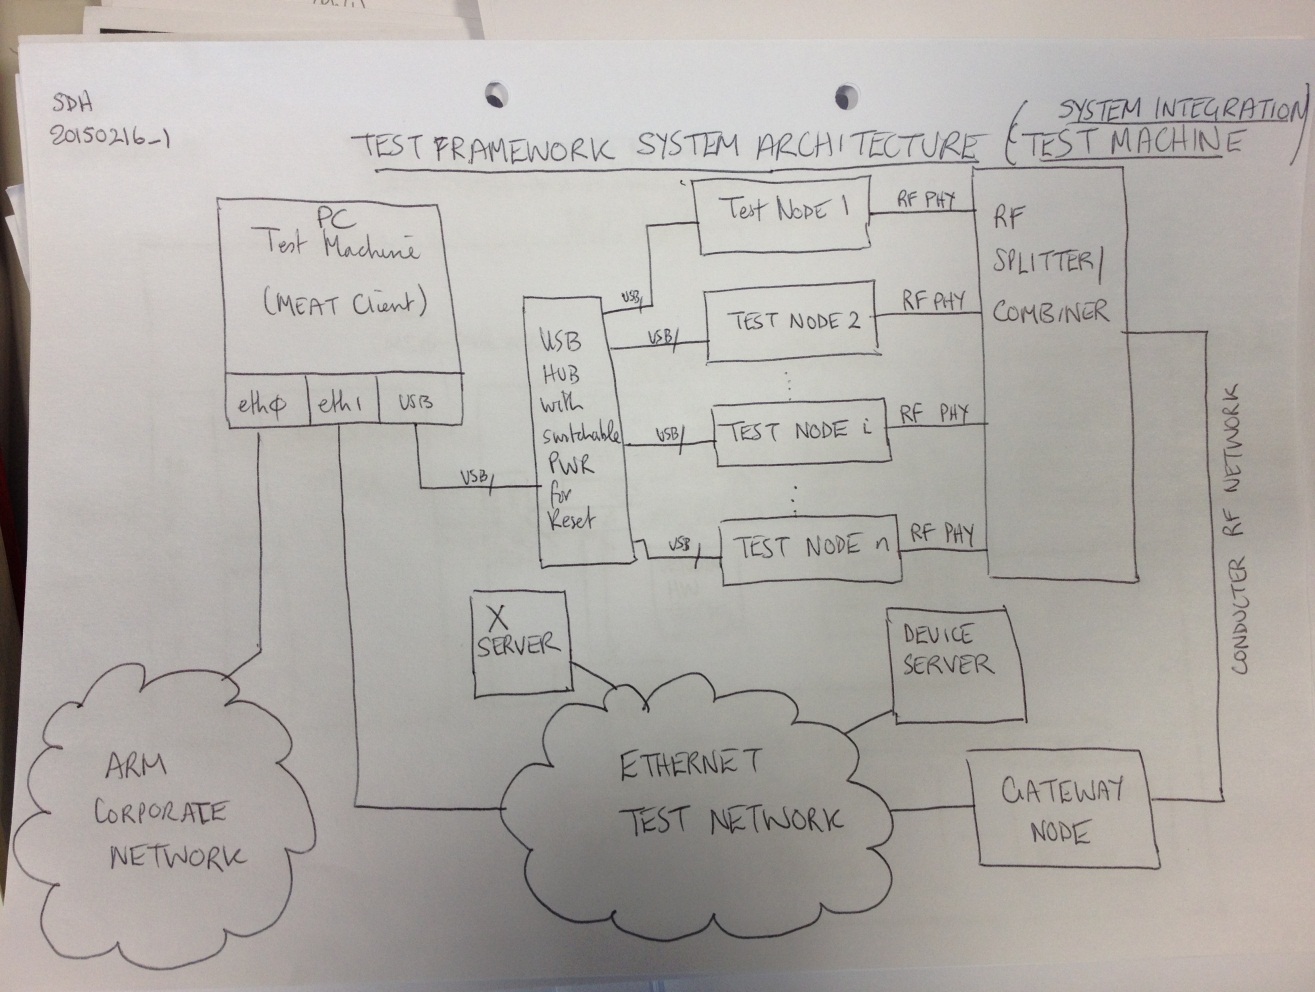 SDH
20150216_1
TEST FRAMEWORK SYSTEM ARCHITECTURE (SYSTEM INTEGRATION
TEST MACHINE)
PC
Test Machine
(MEAT Client)
ethφ
eth1
USB
USB
USB
HUB
with
switchable
PWR
for
Reset
USB
USB
USB
USB
Test NODE 1
TEST NODE 2
TEST NODE i
TEST NODE n
RF PHY
RF PHY
RF PHY
RF PHY
RF
SPLITTER/
COMBINER
CONDUCTER RF NETWORK
X
SERVER
DEVICE
SERVER
ARM
CORPORATE
NETWORK
ETHERNET
TEST NETWORK
GATEWAY
NODE